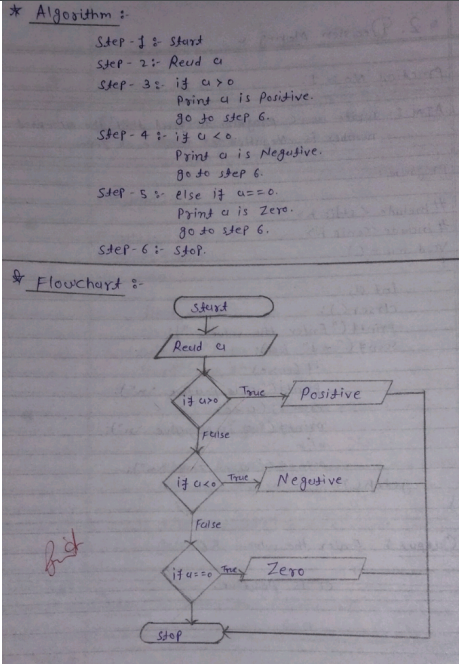 * Algorithm :-
Step-1 :- Start
Step-2 :- Read a
Step-3 :- if a>0
Print a is Positive.
go to step 6.
Step-4 :- if a<0
Print a is Negative.
go to step 6.
Step-5 :- else if a==0.
Print a is Zero.
go to step 6.
Step-6 :- Stop.
* Flowchart :-
Start
Read a
if a>0 True Positive
False
if a<0 True Negative
False
if a==0 True Zero
Stop